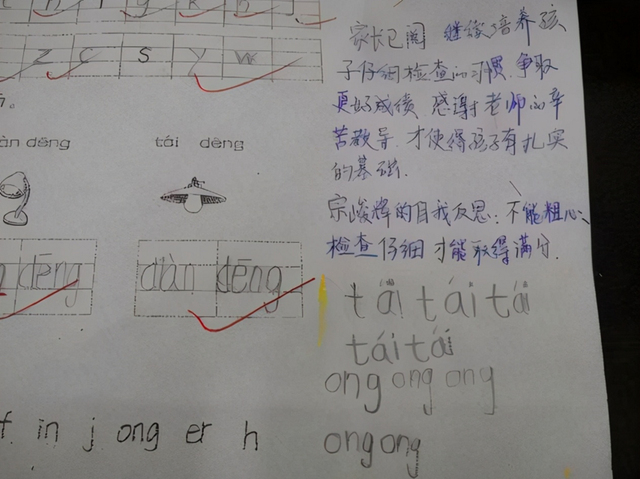 z c s y w
àn dēng tái dēng
dēng diàn dēng
f in j ong er h
家长已阅 继续培养孩
子仔细检查的习惯,争取
更好成绩,感谢老师的辛
苦教导,才使得孩子有扎实
的基础.
宗峻辉的自我反思:不能粗心,
检查仔细才能取得满分.
tái tái tái
tái tái
ong ong ong
ong ong